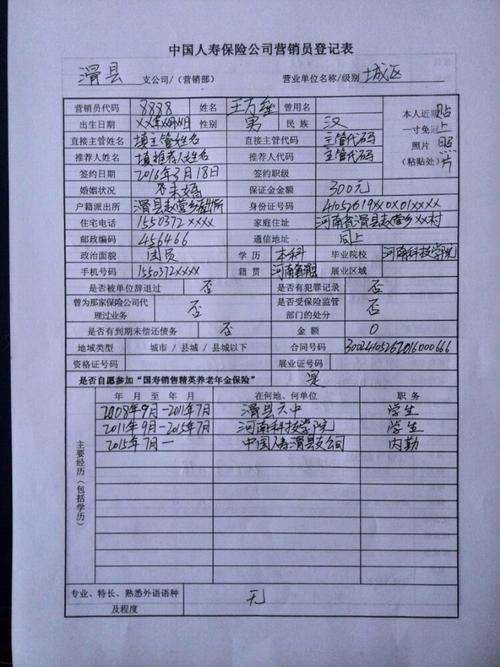 中国人寿保险公司营销员登记表
滑县 支公司/(营销部) 营业单位名称/级别 城区
营销员代码 8888 姓名 王万 曾用名
出生日期 XX年XX月XX日 性别 男 民族 汉 本人近期贴
直接主管姓名 填主管姓名 直接主管代码 主管代码 一寸免冠上
推荐人姓名 填推荐人姓名 推荐人代码 主管代码 照片 照
签约日期 2016年3月18日 签约职级 (粘贴处) 片
婚姻状况 否未婚 保证金金额 300元
户籍派出所 滑县赵营乡派出所 身份证号码
住宅电话 1550372xxxx 家庭住址 河南省滑县赵营乡XX村
邮政编码 456466 通信地址 同上
政治面貌 团员 学历 本科 毕业院校 河南科技学院
手机号码 1550372xxxx 籍贯 河南 展业区域
是否被单位辞退过 否 是否有犯罪记录 否
曾为那家保险公司代理过业务 否 是否受保险监管部门的处分 否
是否有到期未偿还债务 否 金额 0
地域类型 城市/县城/县城以下 合同号码
资格证号码 展业证号码
是否自愿参加“国寿销售精英养老年金保险” 是
主要经历(包括学历) 年 月 至 年 月 在何地、何单位 职务
2008年9月-2011年7月 滑县六中 学生
2011年9月-2015年7月 河南科技学院 学生
2015年7月— 中国人寿滑县支公司 内勤
专业、特长、熟悉外语语种及程度 无